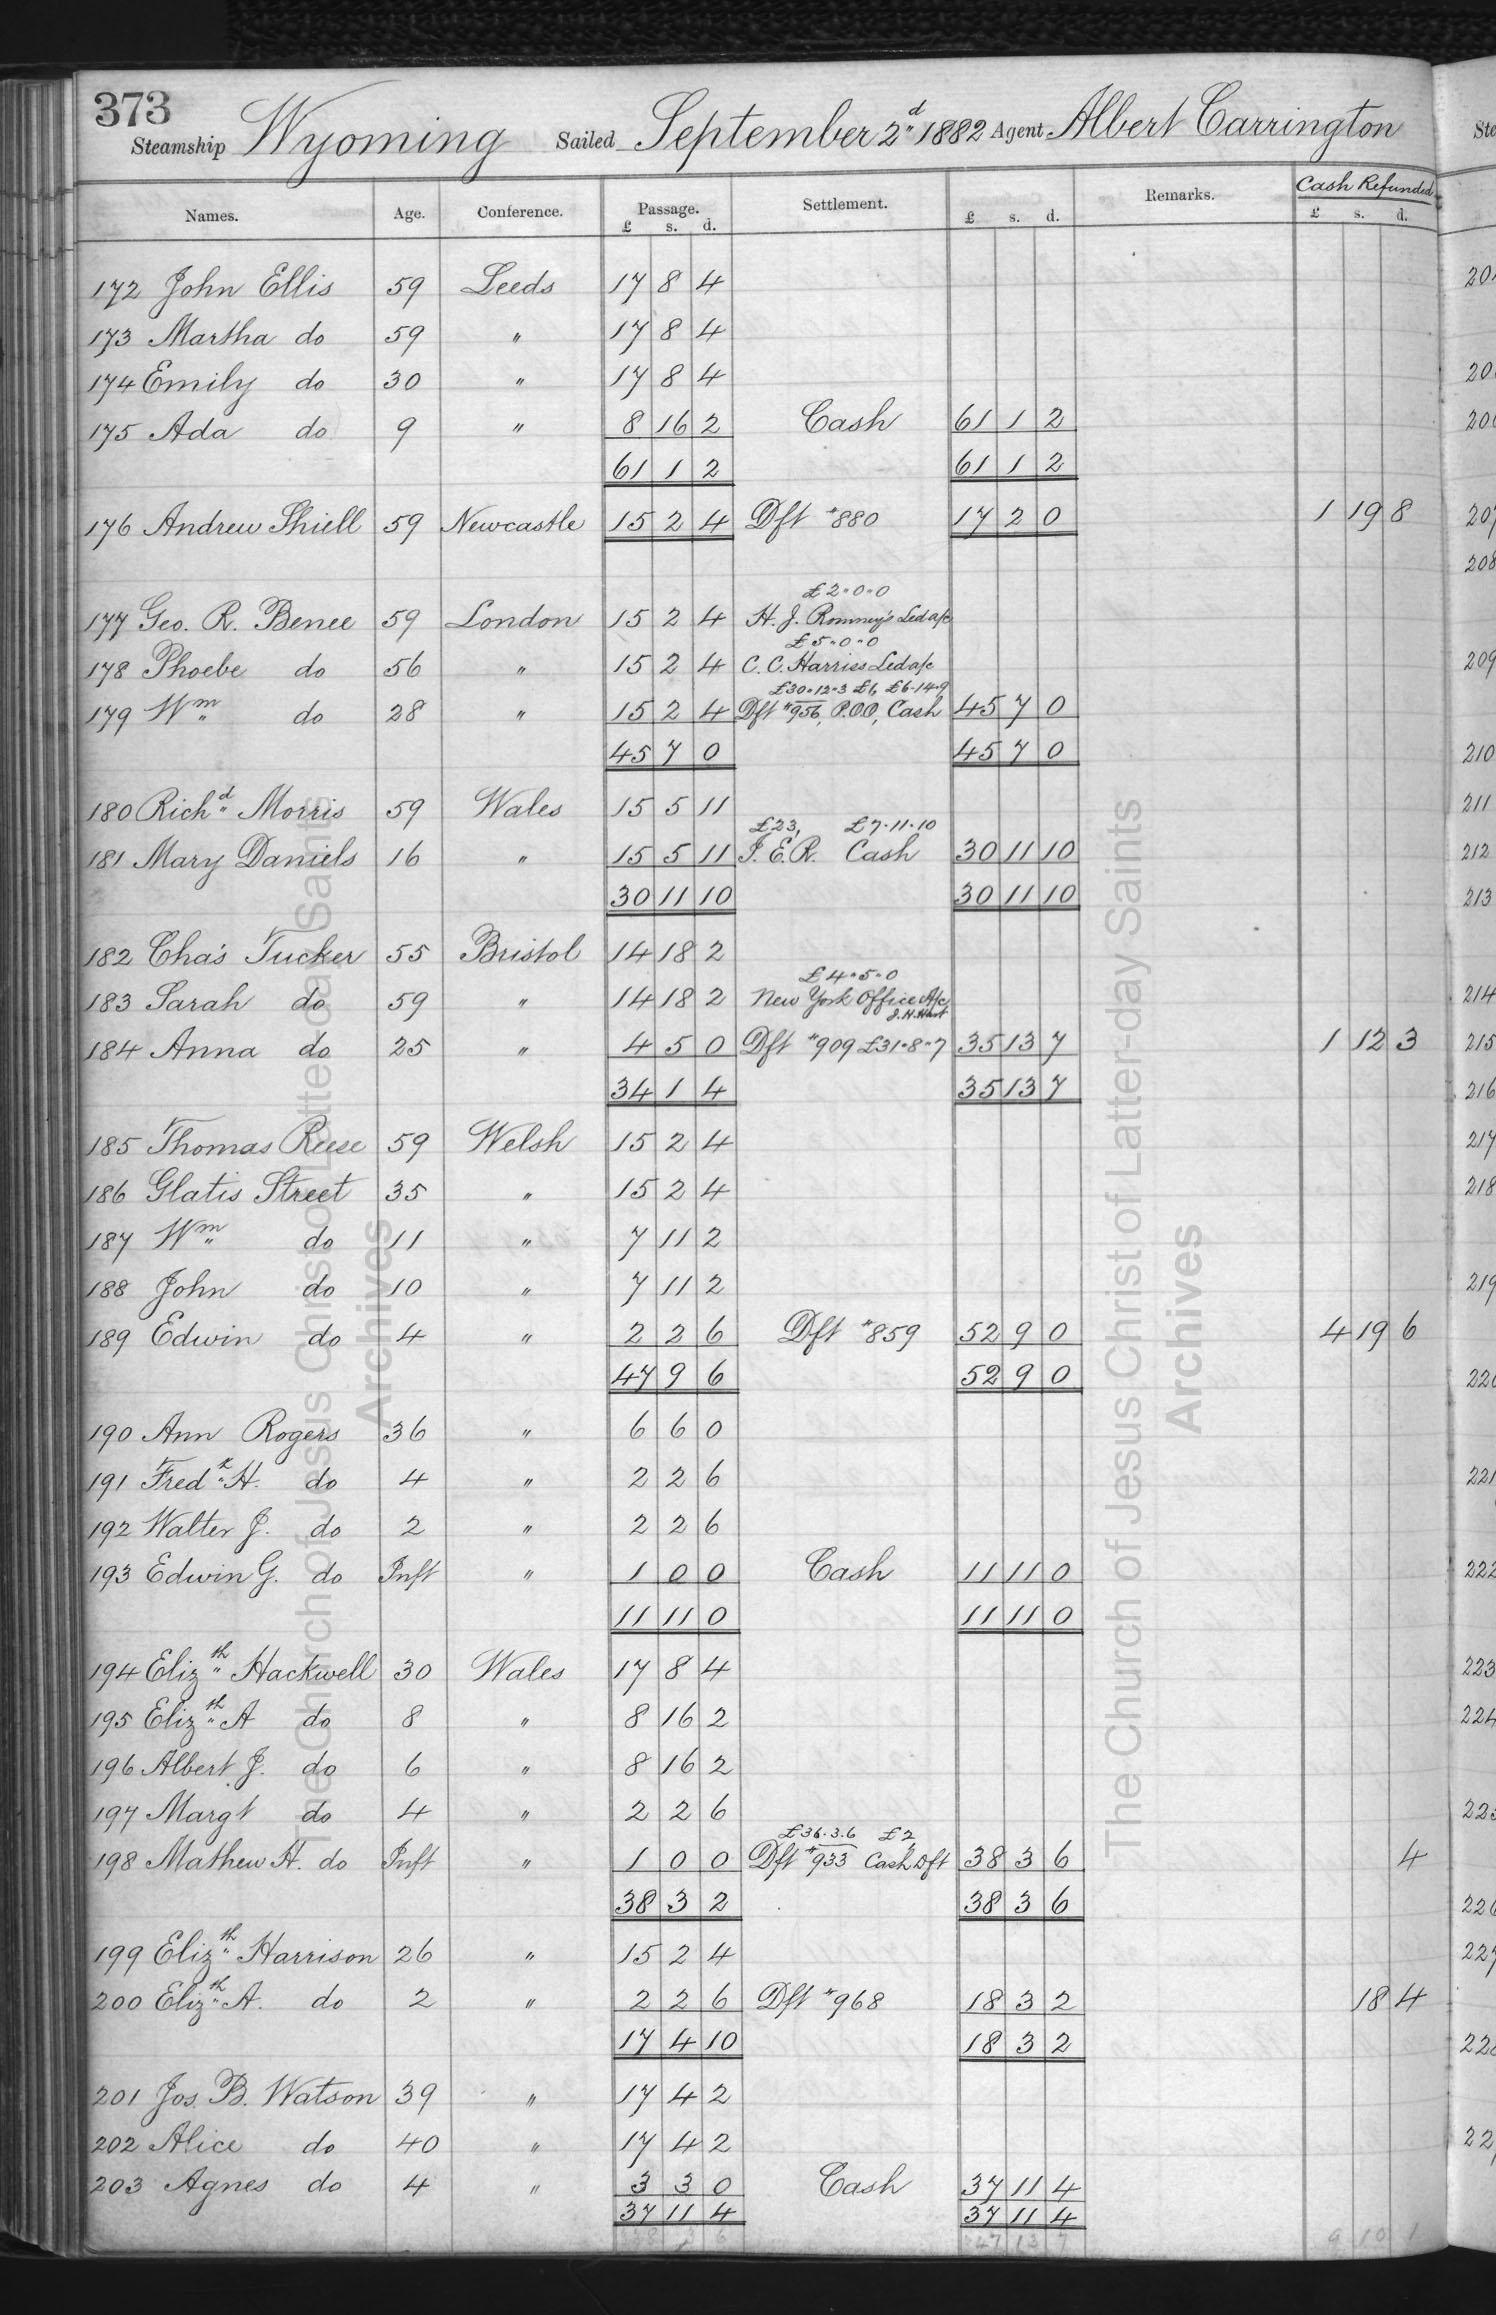 373
Steamship Wyoming Sailed September 2d 1882 Agent Albert Carrington
Names. Age. Conference. Passage. Settlement. Remarks. Cash Refunded
£ s. d. £ s. d. £ s. d.
172 John Ellis 59 Leeds 17 8 4
173 Martha do 59 " 17 8 4
174 Emily do 30 " 17 8 4
175 Ada do 9 " 8 16 2 Cash 61 1 2
61 1 2 61 1 2
176 Andrew Shiell 59 Newcastle 15 2 4 Dft #880 17 2 0 1 19 8
£2"0"0
177 Geo. R. Benee 59 London 15 2 4 H. J. Romney's Led a/c
£5"0"0
178 Phoebe do 56 " 15 2 4 C. C. Harriss Led a/c
£30"12"3 £6, £6-14-9
179 Wm do 28 " 15 2 4 Dft #956, P.O.O, Cash 45 7 0
45 7 0 45 7 0
180 Richd Morris 59 Wales 15 5 11
£23, £7-11-10
181 Mary Daniels 16 " 15 5 11 J. E. R. Cash 30 11 10
30 11 10 30 11 10
182 Cha's Tucker 55 Bristol 14 18 2
£4"5"0
183 Sarah do 59 " 14 18 2 New York Office A/c
J. H. Hart
184 Anna do 25 " 4 5 0 Dft #909 £31"8"7 35 13 7 1 12 3
34 1 4 35 13 7
185 Thomas Reese 59 Welsh 15 2 4
186 Glatis Street 35 " 15 2 4
187 Wm do 11 " 7 11 2
188 John do 10 " 7 11 2
189 Edwin do 4 " 2 2 6 Dft #859 52 9 0 4 19 6
47 9 6 52 9 0
190 Ann Rogers 36 " 6 6 0
191 Fredk H. do 4 " 2 2 6
192 Walter J. do 2 " 2 2 6
193 Edwin G. do Inft " 1 0 0 Cash 11 11 0
11 11 0 11 11 0
194 Elizth Hackwell 30 Wales 17 8 4
195 Elizth A do 8 " 8 16 2
196 Albert J. do 6 " 8 16 2
197 Margt do 4 " 2 2 6
£36.3.6 £2
198 Mathew H. do Inft " 1 0 0 Dft #933 Cash Dft 38 3 6 4
38 3 2 38 3 6
199 Elizth Harrison 26 " 15 2 4
200 Elizth A. do 2 " 2 2 6 Dft #968 18 3 2 18 4
17 4 10 18 3 2
201 Jos. B. Watson 39 " 17 4 2
202 Alice do 40 " 17 4 2
203 Agnes do 4 " 3 3 0 Cash 37 11 4
37 11 4 37 11 4
9 10 1
The Church of Jesus Christ of Latter-day Saints
Archives
The Church of Jesus Christ of Latter-day Saints
Archives